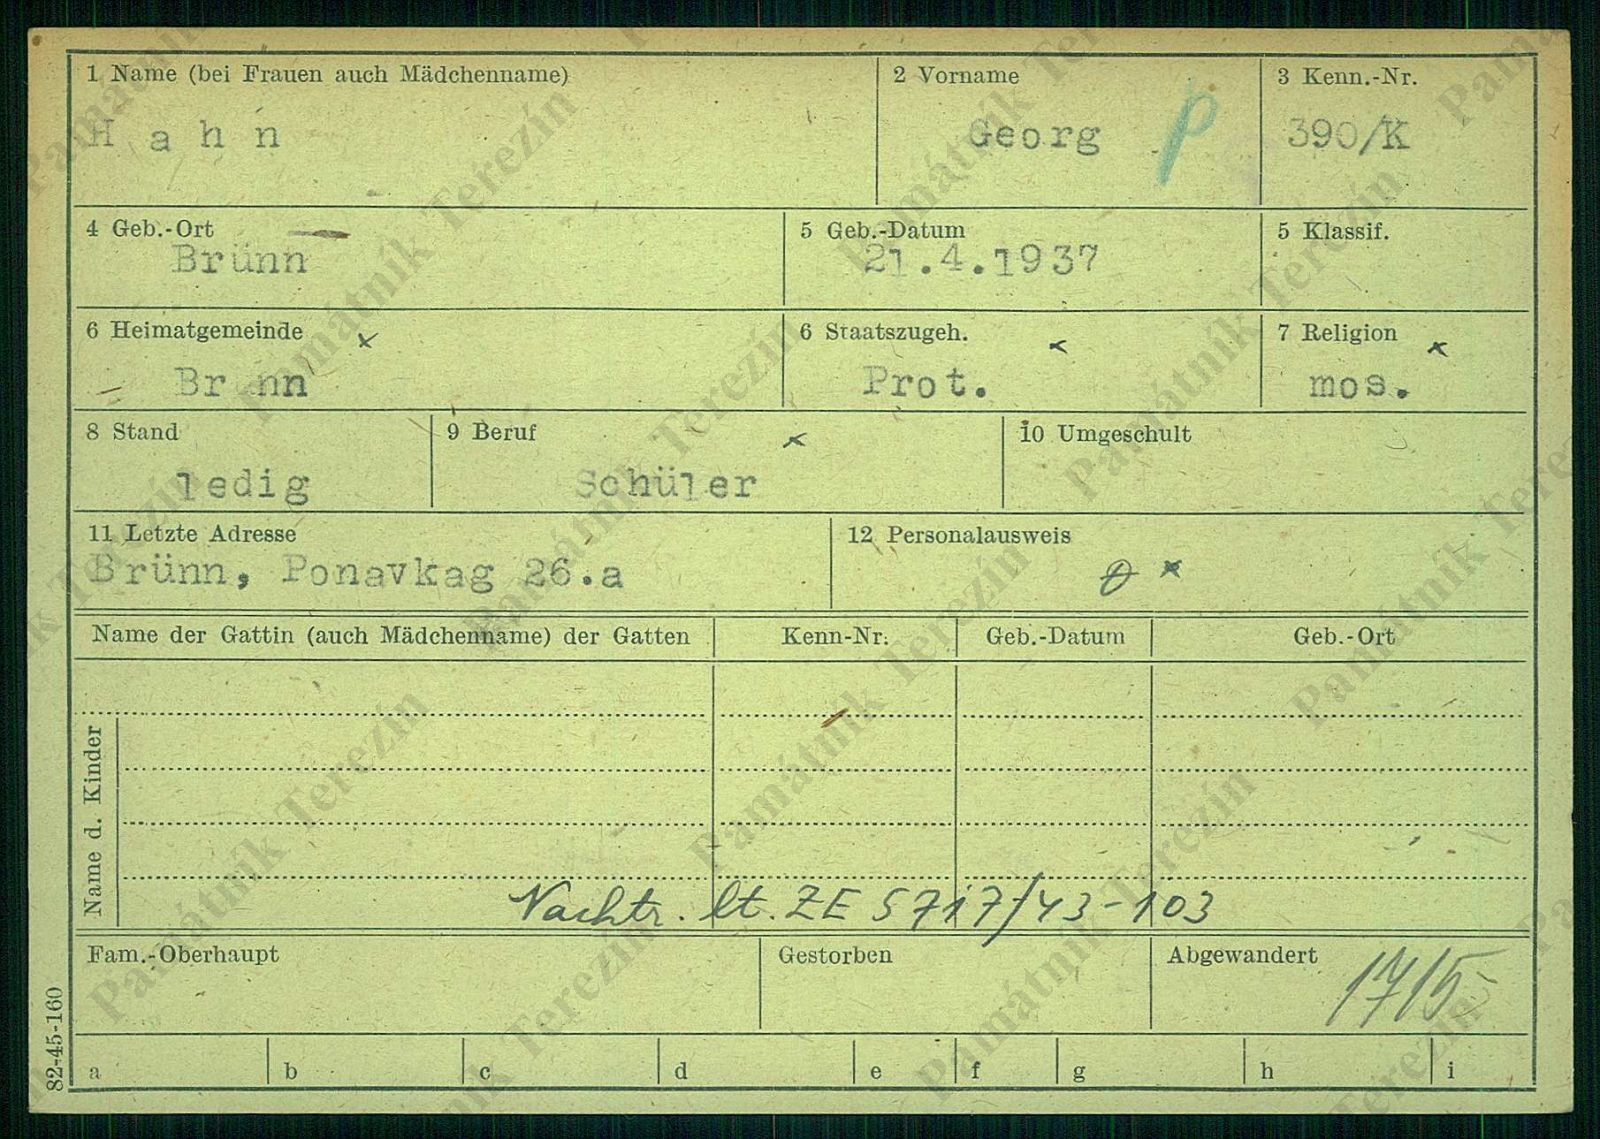 1 Name (bei Frauen auch Mädchenname)
Hahn
2 Vorname
Georg
p
3 Kenn.-Nr.
390/K
4 Geb.-Ort
Brünn
5 Geb.-Datum
21.4.1937
5 Klassif.
6 Heimatgemeinde x
Brünn
6 Staatszugeh. x
Prot.
7 Religion x
mos.
8 Stand
ledig
9 Beruf x
Schüler
10 Umgeschult
11 Letzte Adresse
Brünn, Ponavkag 26.a
12 Personalausweis
x
Name der Gattin (auch Mädchenname) der Gatten
Kenn-Nr.
Geb.-Datum
Geb.-Ort
Name d. Kinder
Nachtr. lt. ZE 5717/43-103
Fam.-Oberhaupt
Gestorben
Abgewandert
a b c d e f g h i
82-45-160
Památník Terezín